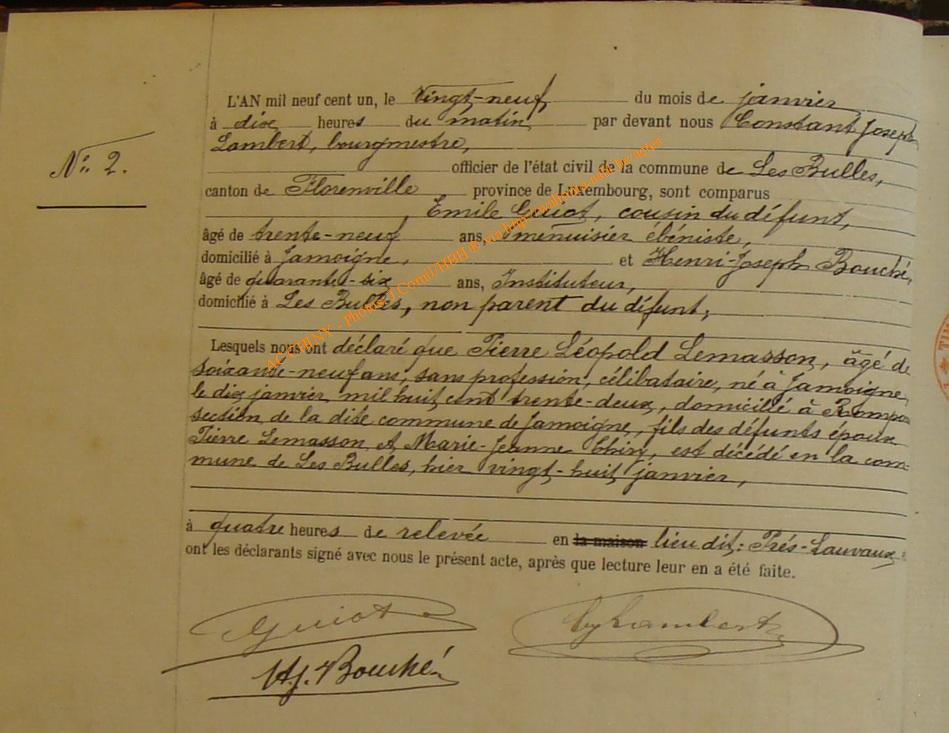 N° 2.
L'AN mil neuf cent un, le Vingt-neuf du mois de janvier
à dix heures du matin par devant nous Constant Joseph
Lambert, bourgmestre,
officier de l'état civil de la commune de Les Bulles,
canton de Florenville province de Luxembourg, sont comparus
Emile Guiot, cousin du défunt,
âgé de trente-neuf ans, menuisier ébéniste,
domicilié à Jamoigne, et Henri-Joseph Bouché,
âgé de quarante-six ans, Instituteur,
domicilié à Les Bulles, non parent du défunt,
Lesquels nous ont déclaré que Pierre Léopold Lemasson, âgé de
soixante-neuf ans, sans profession, célibataire, né à Jamoigne,
le dix janvier mil huit cent trente-deux, domicilié à
section de la dite commune de Jamoigne, fils des défunts époux
Pierre Lemasson et Marie-Jeanne Thiry, est décédé en la com-
mune de Les Bulles, hier vingt-huit janvier,
à quatre heures de relevée en la maison lieu dit: Prés-Lauvaux
ont les déclarants signé avec nous le présent acte, après que lecture leur en a été faite.
Guiot Lambert
H.J. Bouché